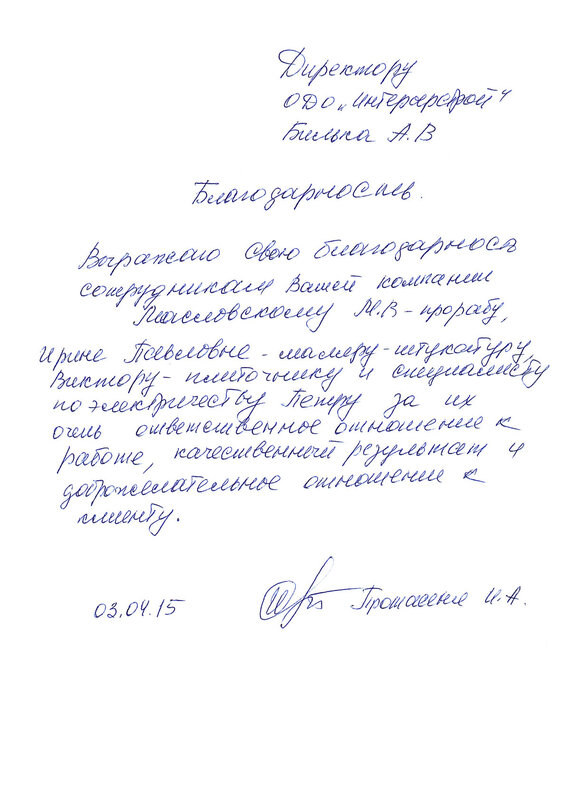 Директору
ОДО „Интерьерстрой"
Билька А.В
Благодарность.
Выражаю свою благодарность
сотрудникам Вашей компании
Масловскому М.В - прорабу,
Ирине Павловне - маляру-штукатуру,
Виктору - плиточнику и специалисту
по электричеству Петру за их
очень ответственное отношение к
работе, качественный результат и
доброжелательное отношение к
клиенту.
03.04.15 Протасеня И.А.